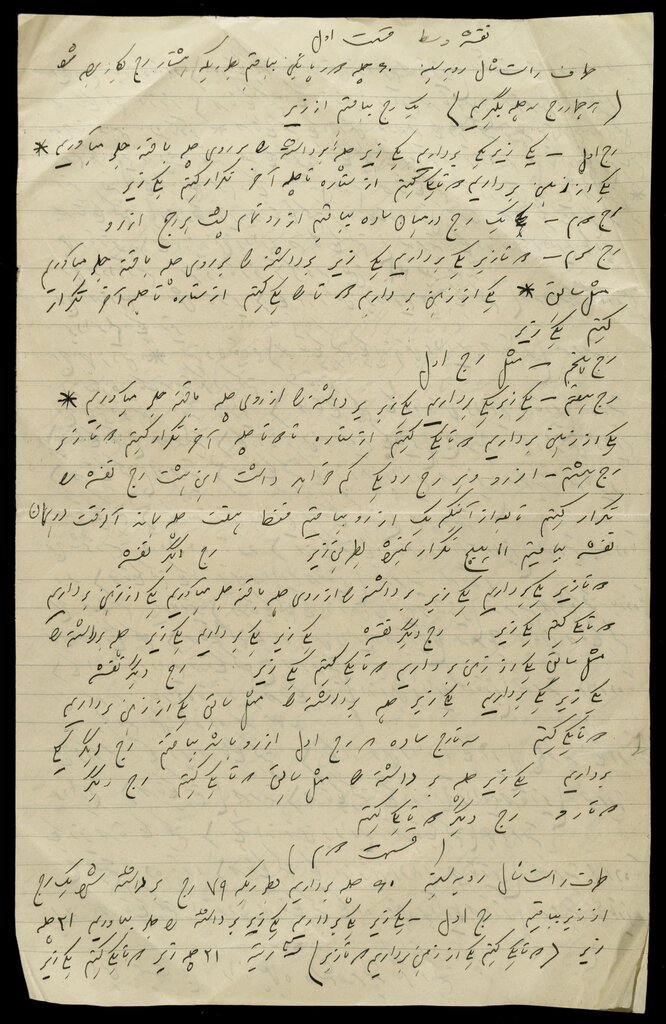 نقشه وسط قسمت اول
طرف راست شال رو به لبه ۹۰ حله بافتن بطوریکه رج
( هر چهار رج یه حله بگیریم ) یک رج ببافیم از زیر
رج اول — یکی زیر یکی برداریم یکی زیر حله برداشته را بر روی حله بافته جلو میآوریم *
یکی از زمین برداریم ۲ تا یکی کنیم از ستاره تا حله آخر تکرار کنیم یکی زیر
رج دوم — یک رج درمیان ساده ببافیم از رو تمام پشت هر رج از رو
رج سوم — ۲ تا زیر یکی برداریم یکی زیر برداشته را بر روی حله بافته جلو میآوریم
مثل سابق * یکی از زمین برداریم ۲ تا را یکی کنیم از ستاره تا حله آخر تکرار
کنیم یکی زیر
رج پنجم — مثل رج اول
رج هفتم — یکی زیر یکی برداریم یکی زیر برداشته را از روی حله بافته جلو میآوریم *
یکی از زمین برداریم ۲ تا یکی کنیم از ستاره تا حله آخر تکرار کنیم ۲ تا زیر
رج هشتم — از رو و هر رج رو یکی کم خواهد داشت این هشت رج نقشه را
تکرار کنیم تا بعد از آنکه یک از رو ببافیم فقط هفت حله مانده آنوقت درمیان
نقشه ببافیم ۱۱ پیچ تکرار بطریق زیر رج دیگر نقشه
۲ تا زیر یکی برداریم یکی زیر برداشته را از روی حله بافته جلو میآوریم یکی از زمین برداریم
۲ تا یکی کنیم یکی زیر رج دیگر نقشه یکی زیر یکی برداریم یکی زیر حله برداشته را
مثل سابق یکی از زمین برداریم ۲ تا یکی کنیم یکی زیر رج دیگر نقشه
یکی زیر یکی برداریم یکی زیر حله برداشته را مثل سابق یکی از زمین برداریم
۲ تا یکی کنیم سه تا رج ساده ۲ رج اول از رو باشد ببافیم رج دیگر یکی
برداریم یکی زیر حله برداشته را مثل سابق ۲ تا یکی کنیم رج دیگر
۲ تا رو رج دیگر ۲ تا یکی کنیم
( قسمت دوم )
طرف راست شال رو به لبه ۹۰ حله برداریم بطوریکه ۷۹ رج برداشته شود یک رج
از زیر ببافیم رج اول — یکی زیر یکی برداریم یکی زیر برداشته را جلو بیاوریم ۲۱ حله
زیر ( ۲ تا یکی کنیم یکی از زمین برداریم ۲ تا زیر ) ۲۱ حله زیر ۲ تا یکی کنیم یکی زیر